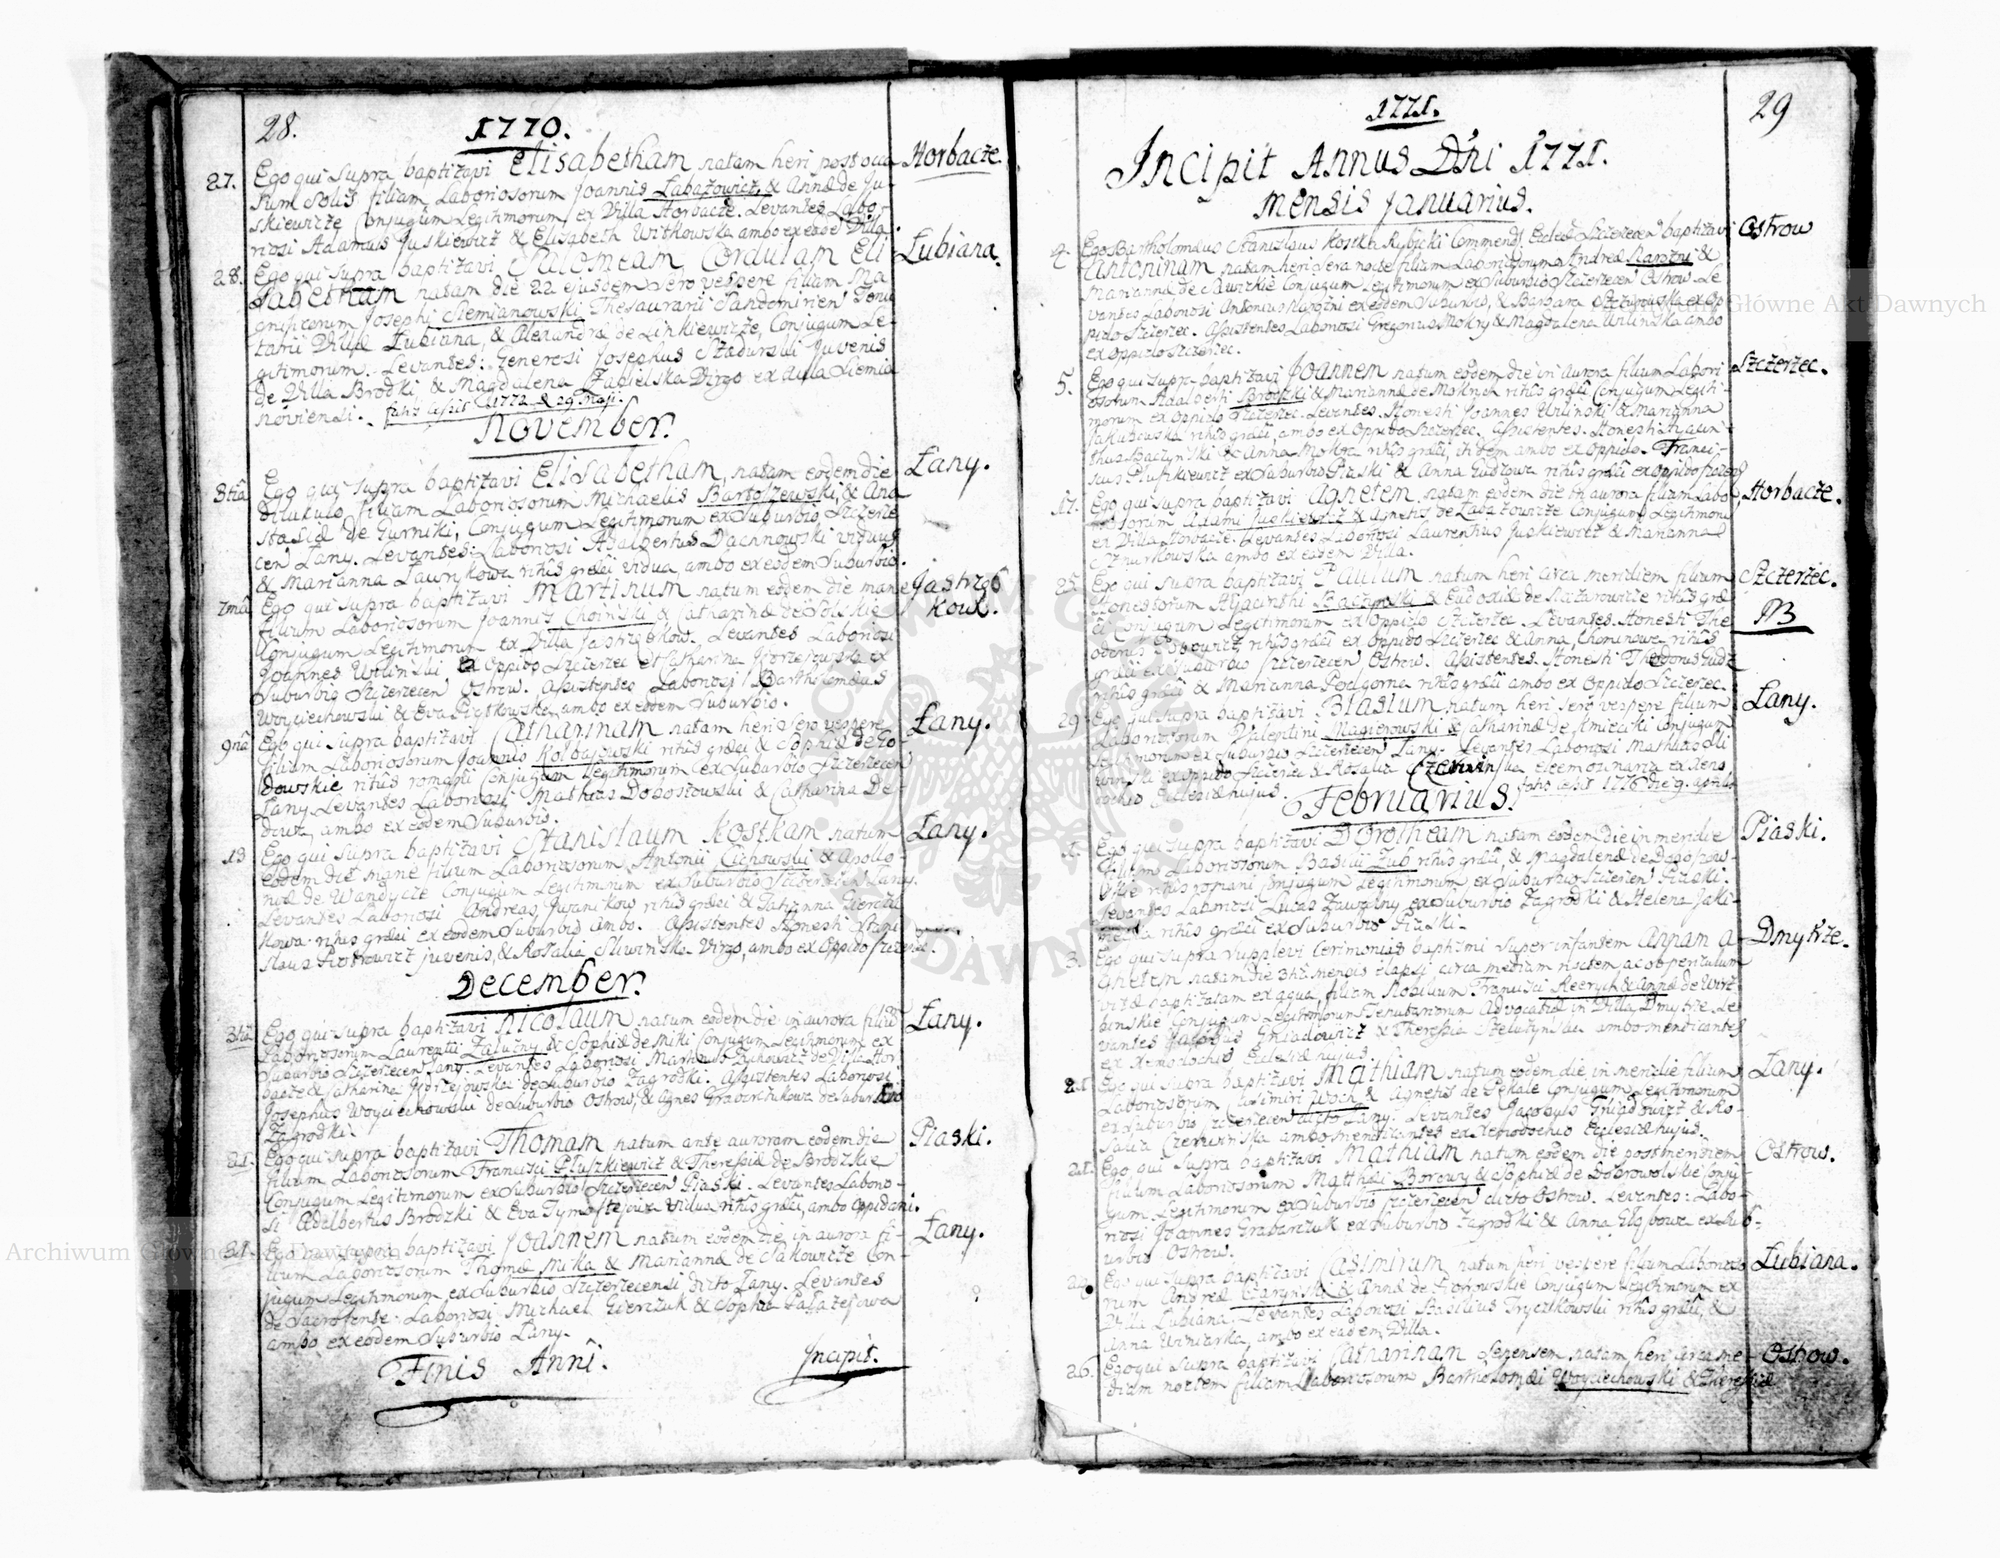 28.
1770.
27.
Ego qui supra baptizavi Elisabetham natam heri post occa
sum Solis filiam Laboriosorum Joannis Łabazowicz, & Annæ de Ju-
skiewicze Conjugum Legitimorum ex Villa Horbacze. Levantes Labo-
riosi Adamus Juskiewicz & Elisabeth Witkowska ambo ex eadē Villa.
Horbacze.
28.
Ego qui supra baptizavi Salomeam, Cordulam Eli
sabetham natam die 22 ejusdem sero vespere filiam Ma
gnificorum Josephi Siemianowski Thesaurarii Sandomirien
tarii Villæ Łubiana, & Alexandræ de Linkiewicze, Conjugum Le-
gitimorum. Levantes: Generosi Josephus Stadurski Juvenis
de Villa Brodki, & Magdalena Jagielska Virgo ex Aula Siemia
noviensi. 1772 d 29 Maji.
Łubiana.
November.
8tiâ
Ego qui supra baptizavi Elisabetham, natam eodem die
diluculo, filiam Laboriosorum Michaelis Bartoszewski, & Ana
stasiæ de Gurniki, Conjugum Legitimorum ex Suburbio Szczerze
cen Łany. Levantes: Laboriosi Adalbertus Dachnowski viduus
& Marianna Ławrykowa ritûs græci vidua ambo ex eodem Suburbio.
Łany.
7mâ
Ego qui supra baptizavi Martinum natum eodem die mane
filium Laboriosorum Joannis Choinski & Catharinæ de Polskie
Conjugum Legitimorum ex Villa Jastrzębkow. Levantes Laboriosi
Joannes Urlinski, ex Oppido Szczerzec et Catharina Jędrzejowska ex
Suburbio Szczerzecen Ostrow. Assistentes Laboriosi Bartholomæus
Woyciechowski & Eva Piątkowska ambo ex eodem Suburbio.
Jastrzęb
kow.
9nâ
Ego qui supra baptizavi Catharinam natam heri sero vespere
filiam Laboriosorum Joannis Kolbajowski ritûs græci & Sophiæ de Go
dowskie ritûs romani Conjugum Legitimorum ex Suburbio Szczerzecen
Łany. Levantes Laboriosi Mathias Dobostowski & Catharina De-
ambo ex eodem Suburbio.
Łany.
19
Ego qui supra baptizavi Stanislaum Kostkam natum
eodem die mane filium Laboriosorum Antonii Cichowski & Apollo-
niæ de Wandycze Conjugum Legitimorum ex Suburbio Szczerzecen Łany.
Levantes Laboriosi Andreas Iwanikow ritûs græci & Tatianna Gierczu
kowa ritûs græci ex eodem Suburbio ambo. Assistentes Honesti Stani
slaus Piotrowicz juvenis, & Rosalia Sliwinska Virgo, ambo ex Oppido Szczerzec.
Łany.
December.
3tiâ
Ego qui supra baptizavi Nicolaum natum eodem die in aurora filiū
Laboriosorum Laurentii Załuczny & Sophiæ de Miki Conjugum Legitimorum ex
Suburbio Szczerzecen Łany. Levantes Laboriosi Mathæus Rychowicz de Villa Hor-
bacze & Catharina Jędrzejowska de Suburbio Zagrodki. Assistentes Laboriosi
Josephus Woyciechowski de Suburbio Ostrow, & Agnes Grabarchukowa de Suburbio
Zagrodki.
Łany.
21.
Ego qui supra baptizavi Thomam natum ante auroram eodem die
filium Laboriosorum Francisci Płuszkiewicz & Theressiæ de Brodzkie
Conjugum Legitimorum ex Suburbio Szczerzecen Piaski. Levantes Laborio-
si Adelbertus Brodzki & Eva vidua ritûs græci, ambo Oppidani.
Piaski.
27.
Ego qui supra baptizavi Joannem natum eodem die in aurora fi-
lium Laboriosorum Thomæ Mika & Mariannæ de Sakowicze Con
jugum Legitimorum, ex Suburbio Szczerzecensi dicto Łany. Levantes
de Laboriosi Michael Gierczuk & Sophia
ambo ex eodem Suburbio Łany.
Łany.
Finis Anni.
Incipit.
1771.
29
Incipit Annus Dñi 1771.
Mensis Januarius.
4.
Ego Bartholomæus Stanislaus Kostka Rybicki Commend. Ecclæ Szczerzecen baptizavi
Antoninam natam heri sera nocte filiam Laboriosorum Andreæ Narozni &
Mariannæ de Sawickie Conjugum Legitimorum ex Suburbio Szczerzecen Ostrow. Le
vantes Laboriosi Antonius Narozni ex eodem Suburbio, & Barbara Szczurowska ex Op
pido Szczerzec. Assistentes Laboriosi Gregorius Mokry & Magdalena Urlinska ambo
ex Oppido Szczerzec.
Ostrow
5.
Ego qui supra baptizavi Joannem natum eodem die in Aurora filium Labori
osorum Adalberti Brodzki & Mariannæ de Mokrych ritûs græci Conjugum Legiti-
morum ex Oppido Szczerzec. Levantes Honesti Joannes Urlinski & Marianna
Jakubowska ritûs græci, ambo ex Oppido Szczerzec. Assistentes Honesti Hyacin
thus Baczynski & Anna Mokra ritûs græci, itidem ambo ex Oppido. Franci-
scus Pluszkiewicz ex Suburbio Piaski & Anna Gudzowa ritûs græci ex Oppido Szczerzec
Szczerzec.
17.
Ego qui supra baptizavi Agnetem, natam eodem die in aurora filiam Labo
riosorum Adami Juskiewicz & Agnetis de Łabazowicze Conjugum Legitimorū
ex Villa Horbacze. Levantes Laboriosi Laurentius Juskiewicz & Marianna
Sznurkowska ambo ex eadem Villa.
Horbacze.
25.
Ego qui supra baptizavi Paulum natum heri circa meridiem filium
Honestorum Hyacinthi Baczynski & Eudoxiæ de Nazarowicze ritûs græ
ci Conjugum Legitimorum ex Oppido Szczerzec. Levantes Honesti The
odorus Popowicz ritûs græci ex Oppido Szczerzec & Anna Choninowa ritûs
græci ex Suburbio Szczerzecen Ostrow. Assistentes Honesti Theodorus Gudz
ritûs græci & Marianna Podgorna ritûs græci ambo ex Oppido Szczerzec.
Szczerzec.
NB
29.
Ego qui supra baptizavi Blasium natum heri sero vespere filium
Laboriosorum Valentini Magierowski & Catharinæ de Kmieciki Conjugum
Legitimorum ex Suburbio Szczerzecen Łany. Levantes Laboriosi Mathias Sli
winski ex Oppido Szczerzec & Rosalia Czerwinska eleemosinaria ex Xeno
dochio Ecclesiæ hujus. 1776 die 9. Aprilis
Łany.
Februarius.
1.
Ego qui supra baptizavi Dorotheam natam eodem die in meridie
filiam Laboriosorum Basilii Zub ritûs græci, & Magdalenæ de
ritûs romani Conjugum Legitimorum ex Suburbio Szczerzecen Piaski.
Levantes Laboriosi Lucas Zawalny ex Suburbio Zagrodki & Helena Jaki-
ritûs græci ex Suburbio Piaski.
Piaski.
3.
Ego qui supra supplevi Cerimonias baptismi super infantem Annam A-
gnetem natam die 31ti mensis elapsi circa mediam noctem, ac ob periculum
vitæ baptizatam ex aqua, filiam Nobilium Francisci Recrych & Annæ de Wirz
binskie Conjugum Legitimorum Tenutariorum Advocatiæ in Villa Dmytrze. Le
vantes Jacobus Gniadowicz & Theressia Szelutynska ambo mendicantes
ex Xenodochio Ecclesiæ hujus.
Dmytrze.
21.
Ego qui supra baptizavi Mathiam natum eodem die in meridie filium
Laboriosorum Casimiri Woch & Agnetis de Pekale Conjugum Legitimorum
ex Suburbio Szczerzecen dicto Łany. Levantes Jacobus Gniadowicz & Ro-
salia Czerwinska ambo mendicantes ex Xenodochio Ecclesiæ hujus.
Łany.
21.
Ego qui supra baptizavi Mathiam natum eodem die post meridiem
filium Laboriosorum Matthæi Borowy & Sophiæ de Dobrowolskie Conju-
gum Legitimorum ex Suburbio Szczerzecen dicto Ostrow. Levantes: Labo-
riosi Joannes Grabarczuk ex Suburbio Zagrodki & Anna Głąbowa ex Sub-
urbio Ostrow.
Ostrow.
Ego qui supra baptizavi Casimirum natum heri vespere filium Laborioso
rum Andreæ & Annæ de Conjugum Legitimorum ex
Villa Łubiana. Levantes Laboriosi Basilius Tryczkowski ritûs græci, &
Anna Winiarka, ambo ex eadem Villa.
Łubiana.
26.
Ego qui supra baptizavi Catharinam Senensem natam heri circa me-
diam noctem filiam Laboriosorum Bartholomæi Woyciechowski & Theressiæ
Ostrow.
Archiwum Główne Akt Dawnych